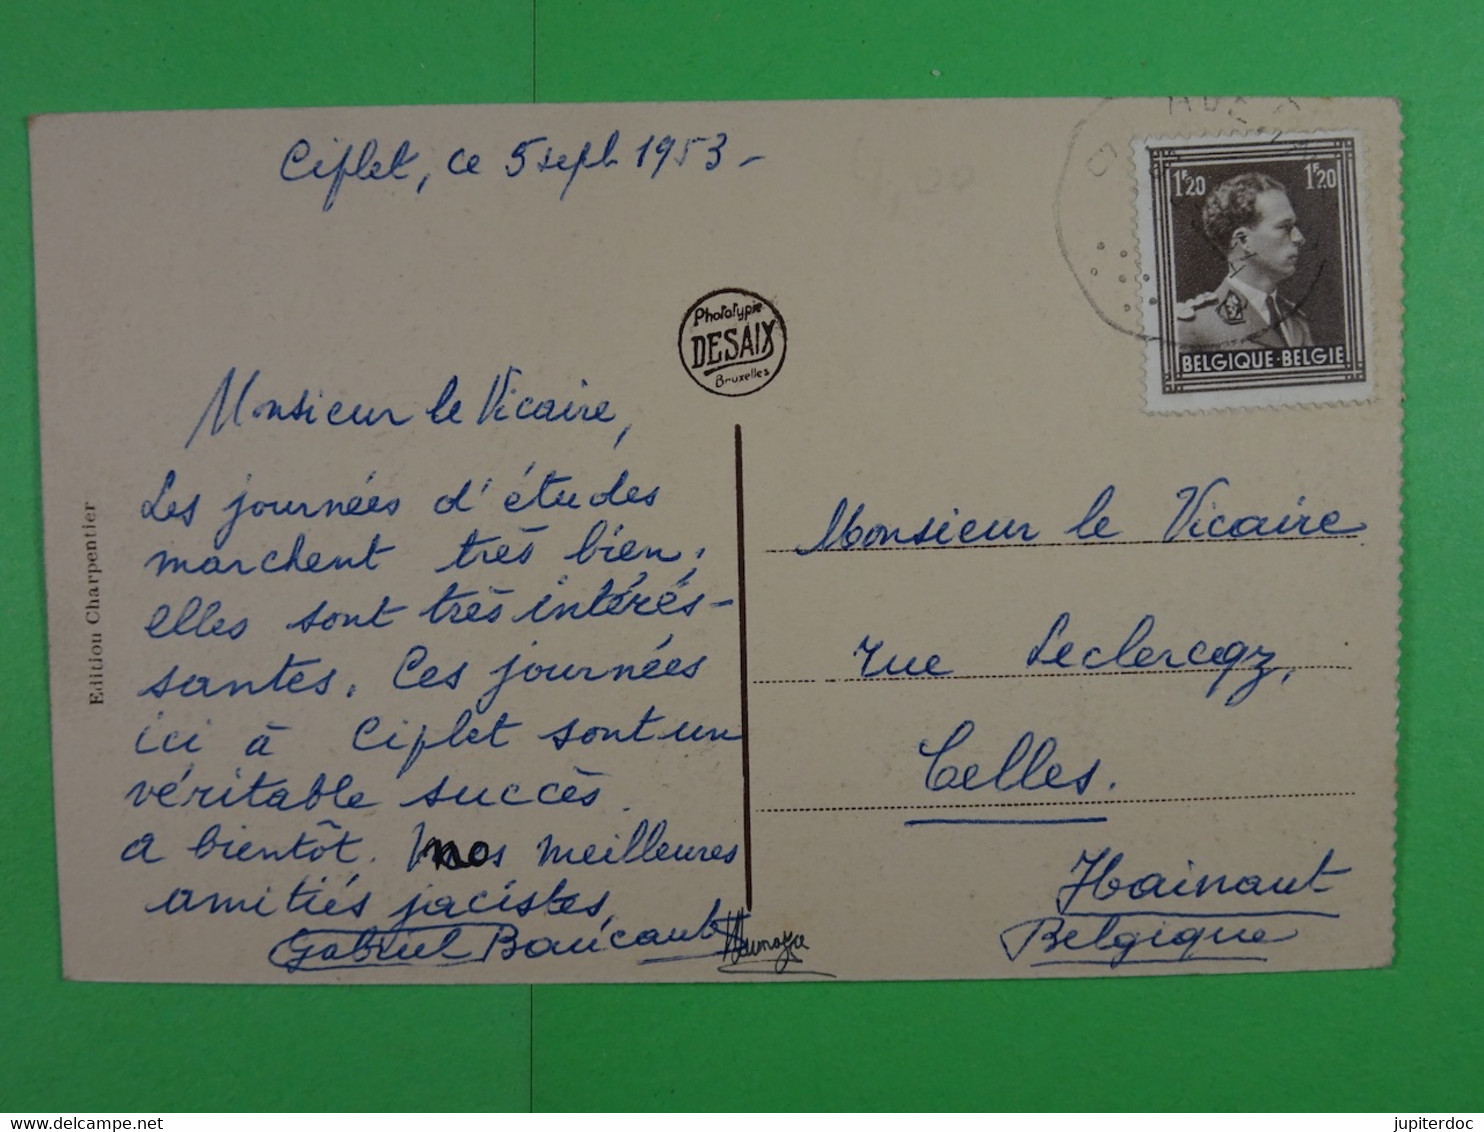 Ciplet, ce 5 sept 1953 -
Phototypie
DESAIX
Bruxelles
1F20 1F20
BELGIQUE-BELGIE
Edition Charpentier
Monsieur le Vicaire,
Les journées d'études
marchent très bien,
elles sont très intérés-
santes. Ces journées
ici à Ciplet sont un
véritable succès.
A bientôt. nos meilleures
amitiés jacistes,
Gabriel
Monsieur le Vicaire
rue Leclercqz,
Celles.
Hainaut
Belgique
jupiterdoc